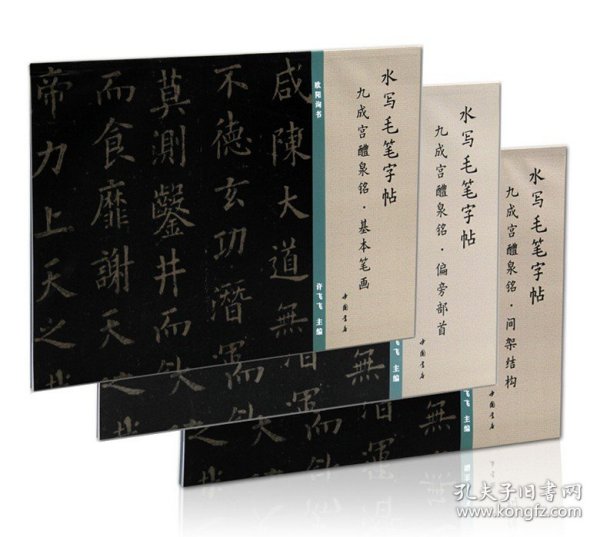 水写毛笔字帖
九成宫醴泉铭·基本笔画
中国书店
欧阳询书
许飞飞 主编
咸陳大道無
不德玄功潛運
莫測鑿井而飲
而食靡謝天
帝力上天之
水写毛笔字帖
九成宫醴泉铭·偏旁部首
中国书店
飞飞 主编
水写毛笔字帖
九成宫醴泉铭·间架结构
中国书店
飞 主编
孔夫子旧书网
www.kongfz.com